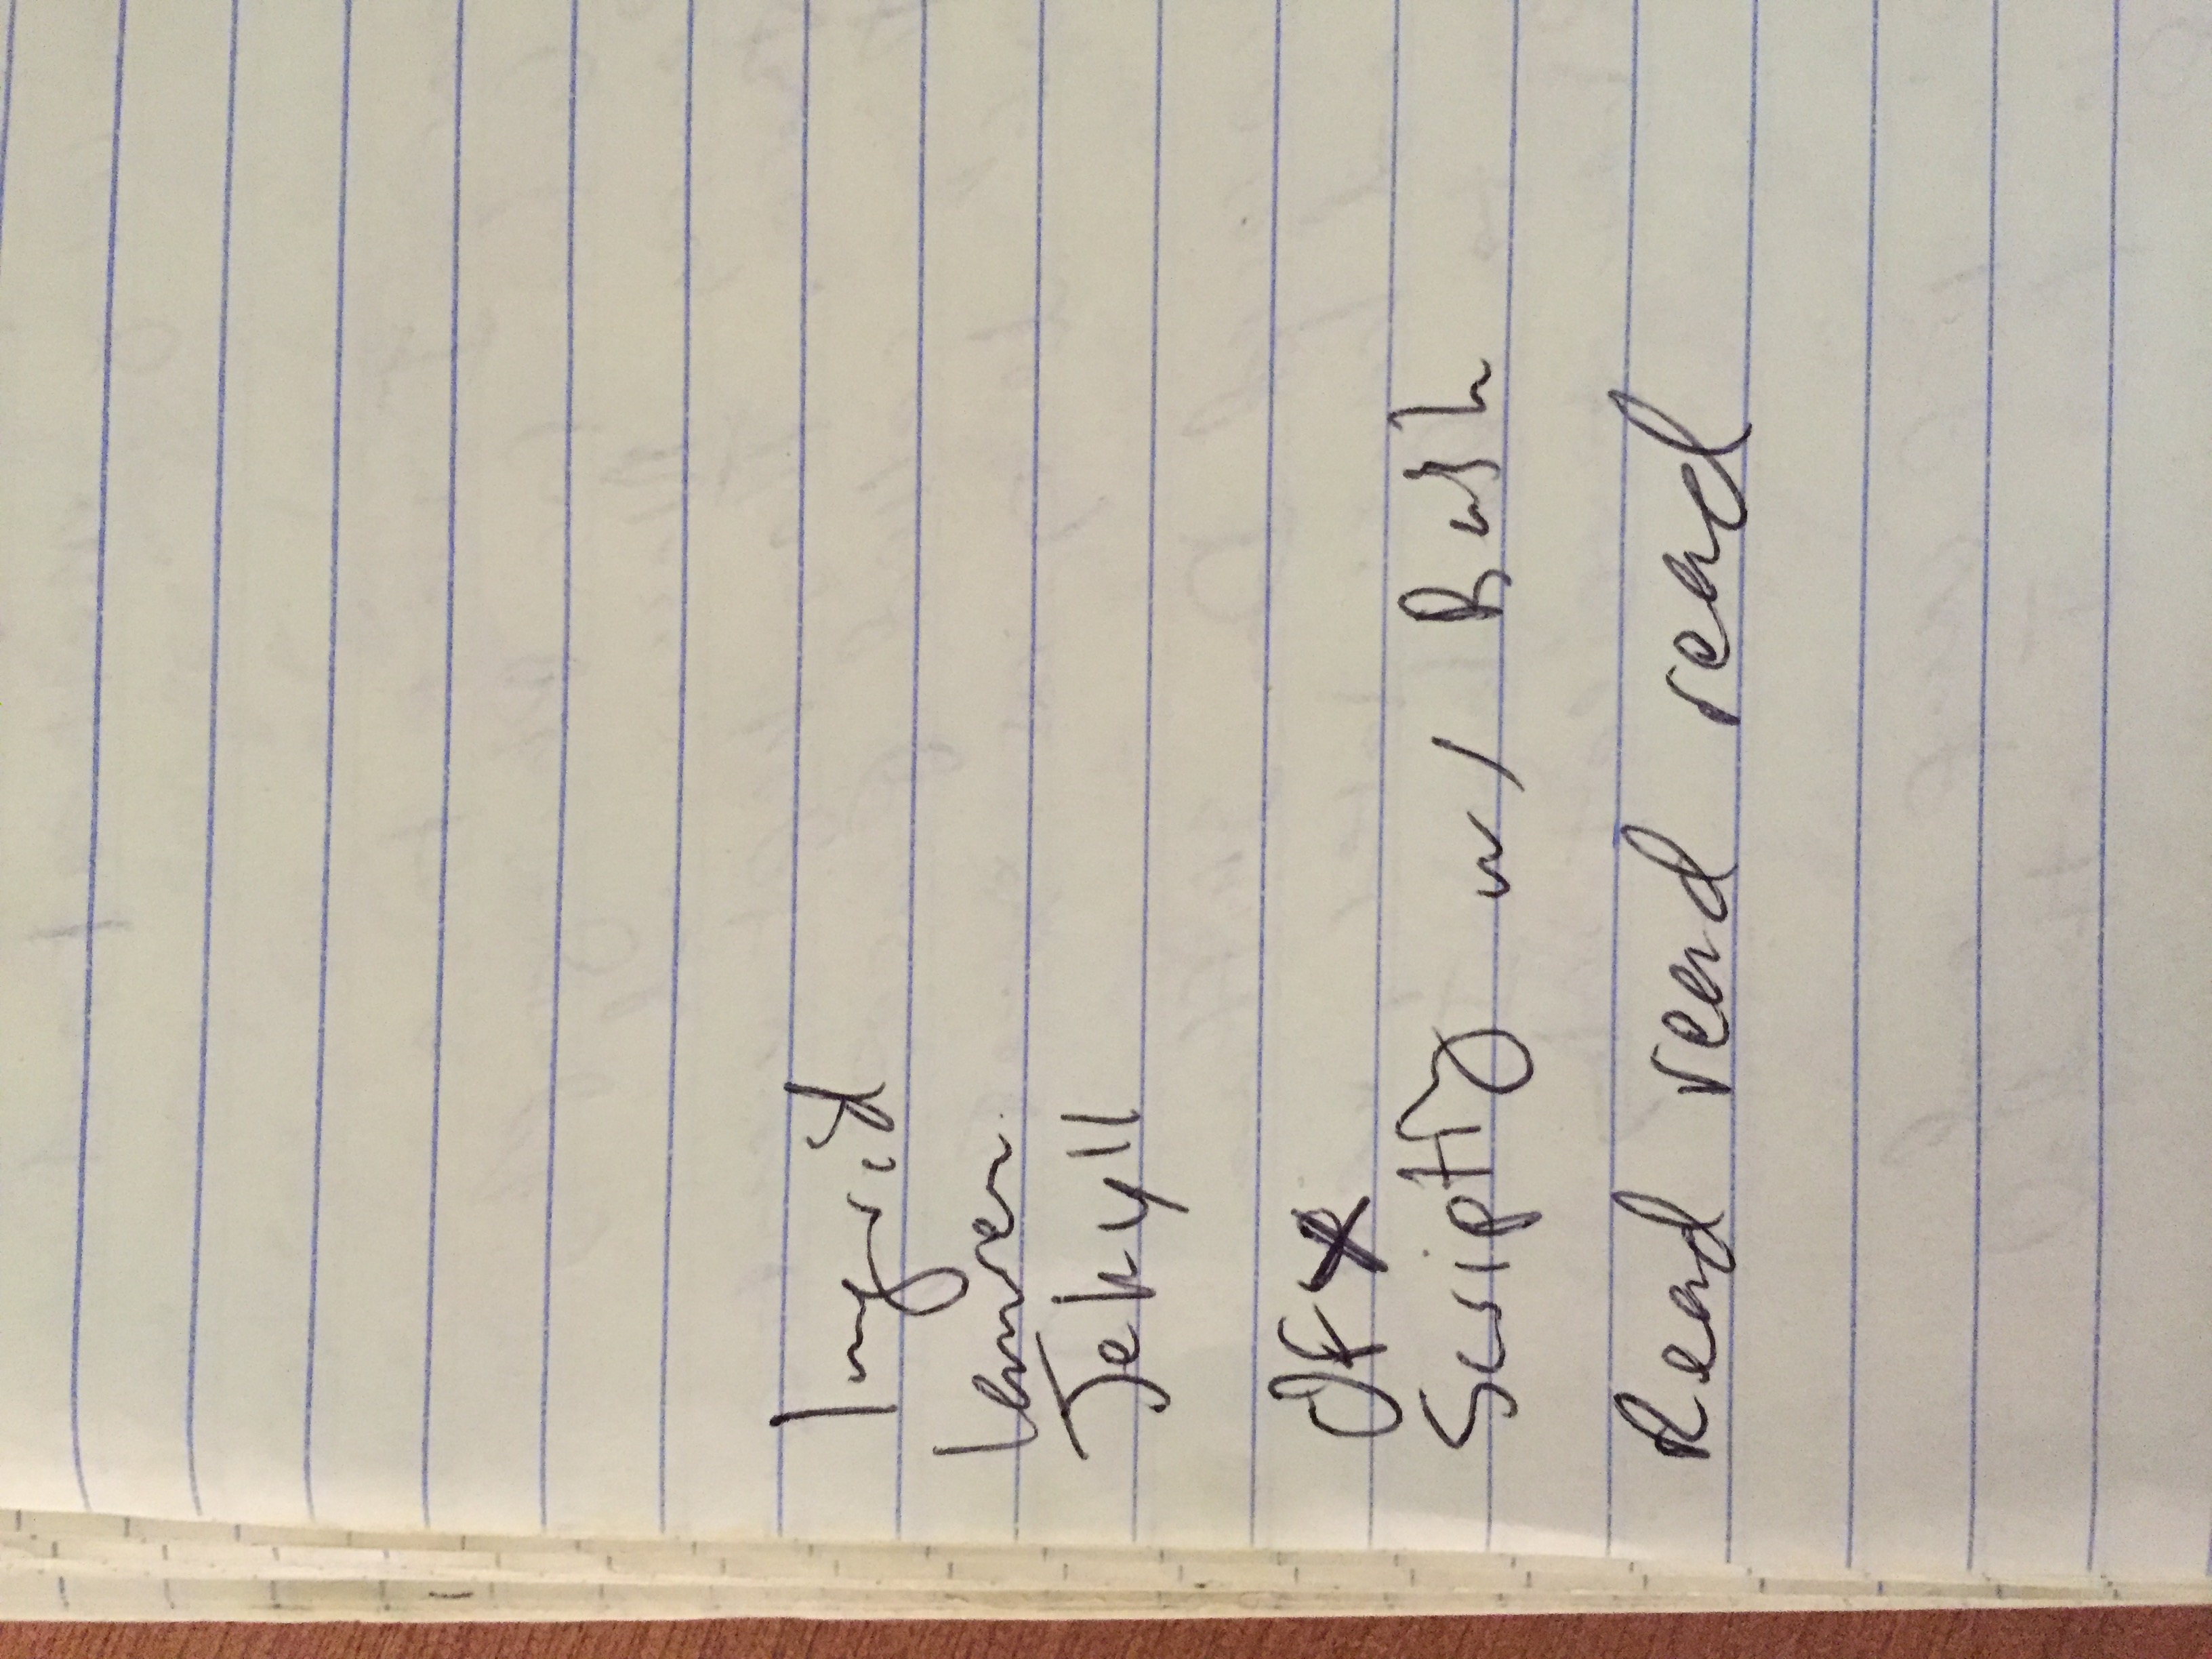 Ingrid
Jekyll
OFX
Scripting w/ Bash
Read read read